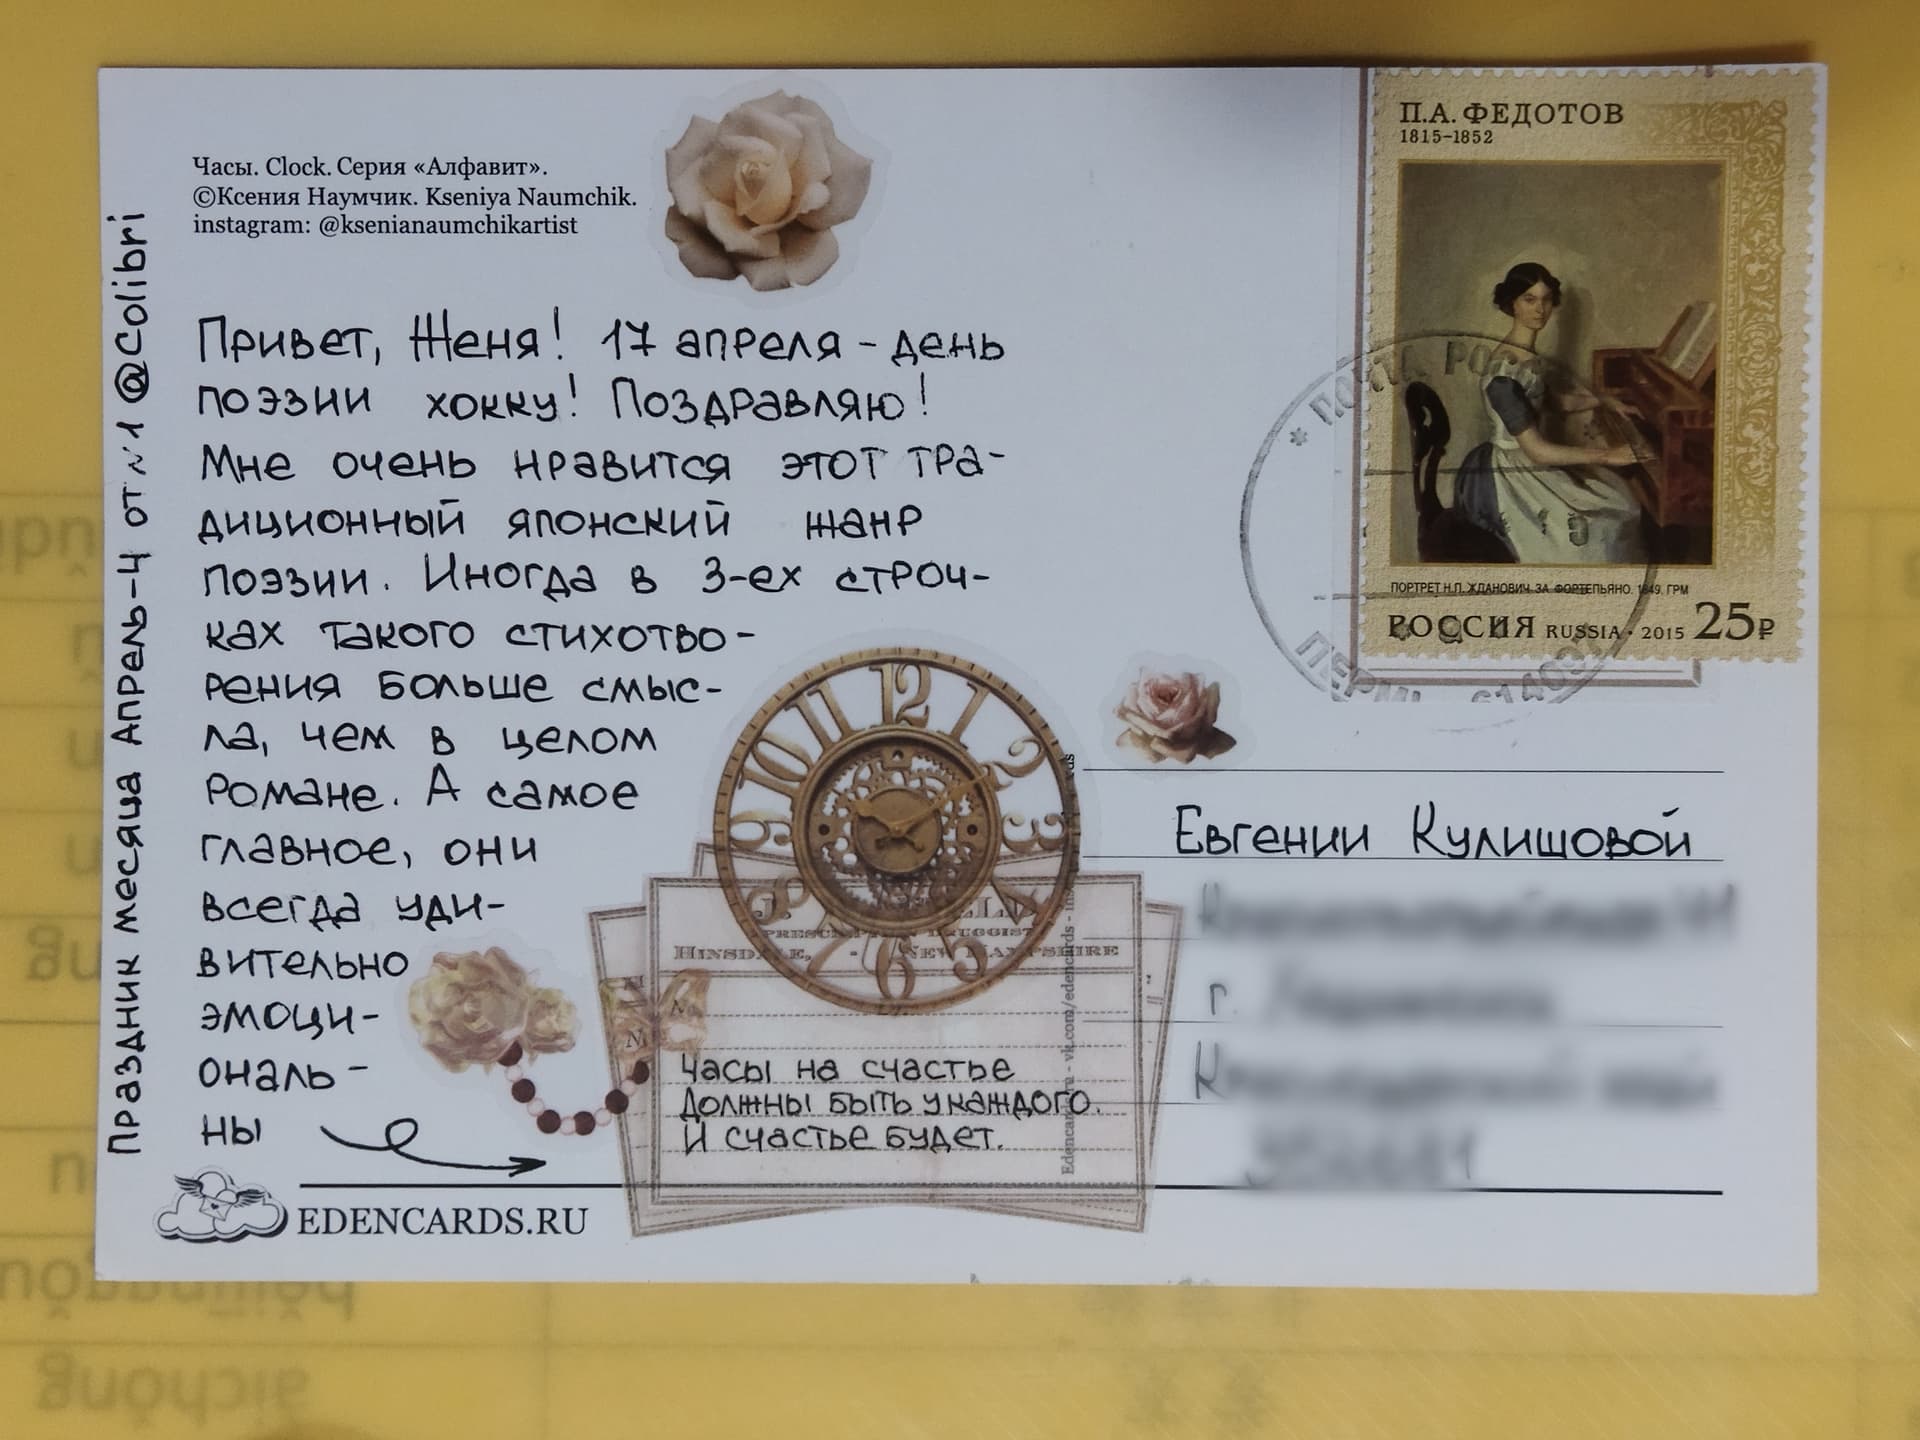 Часы. Clock. Серия «Алфавит».
©Ксения Наумчик. Kseniya Naumchik.
instagram: @ksenianaumchikartist
Праздник месяца Апрель-4 от №1 @Colibri
Привет, Женя! 17 апреля - день
поэзии хокку! Поздравляю!
Мне очень нравится этот тра-
диционный японский жанр
поэзии. Иногда в 3-ех строч-
ках такого стихотво-
рения больше смыс-
ла, чем в целом
романе. А самое
главное, они
всегда уди-
вительно
эмоци-
ональ-
ны
HINSDALE, - NEW HAMPSHIRE
Часы на счастье
Должны быть у каждого.
И счастье будет.
EDENCARDS.RU
Edencards.ru - vk.com/edencards
П.А. ФЕДОТОВ
1815–1852
ПОРТРЕТ Н.П. ЖДАНОВИЧ ЗА ФОРТЕПЬЯНО. 1849. ГРМ
РОССИЯ RUSSIA • 2015 25₽
* ПОЧТА РОСС
ПЕРМЬ
Евгении Кулишовой
г.